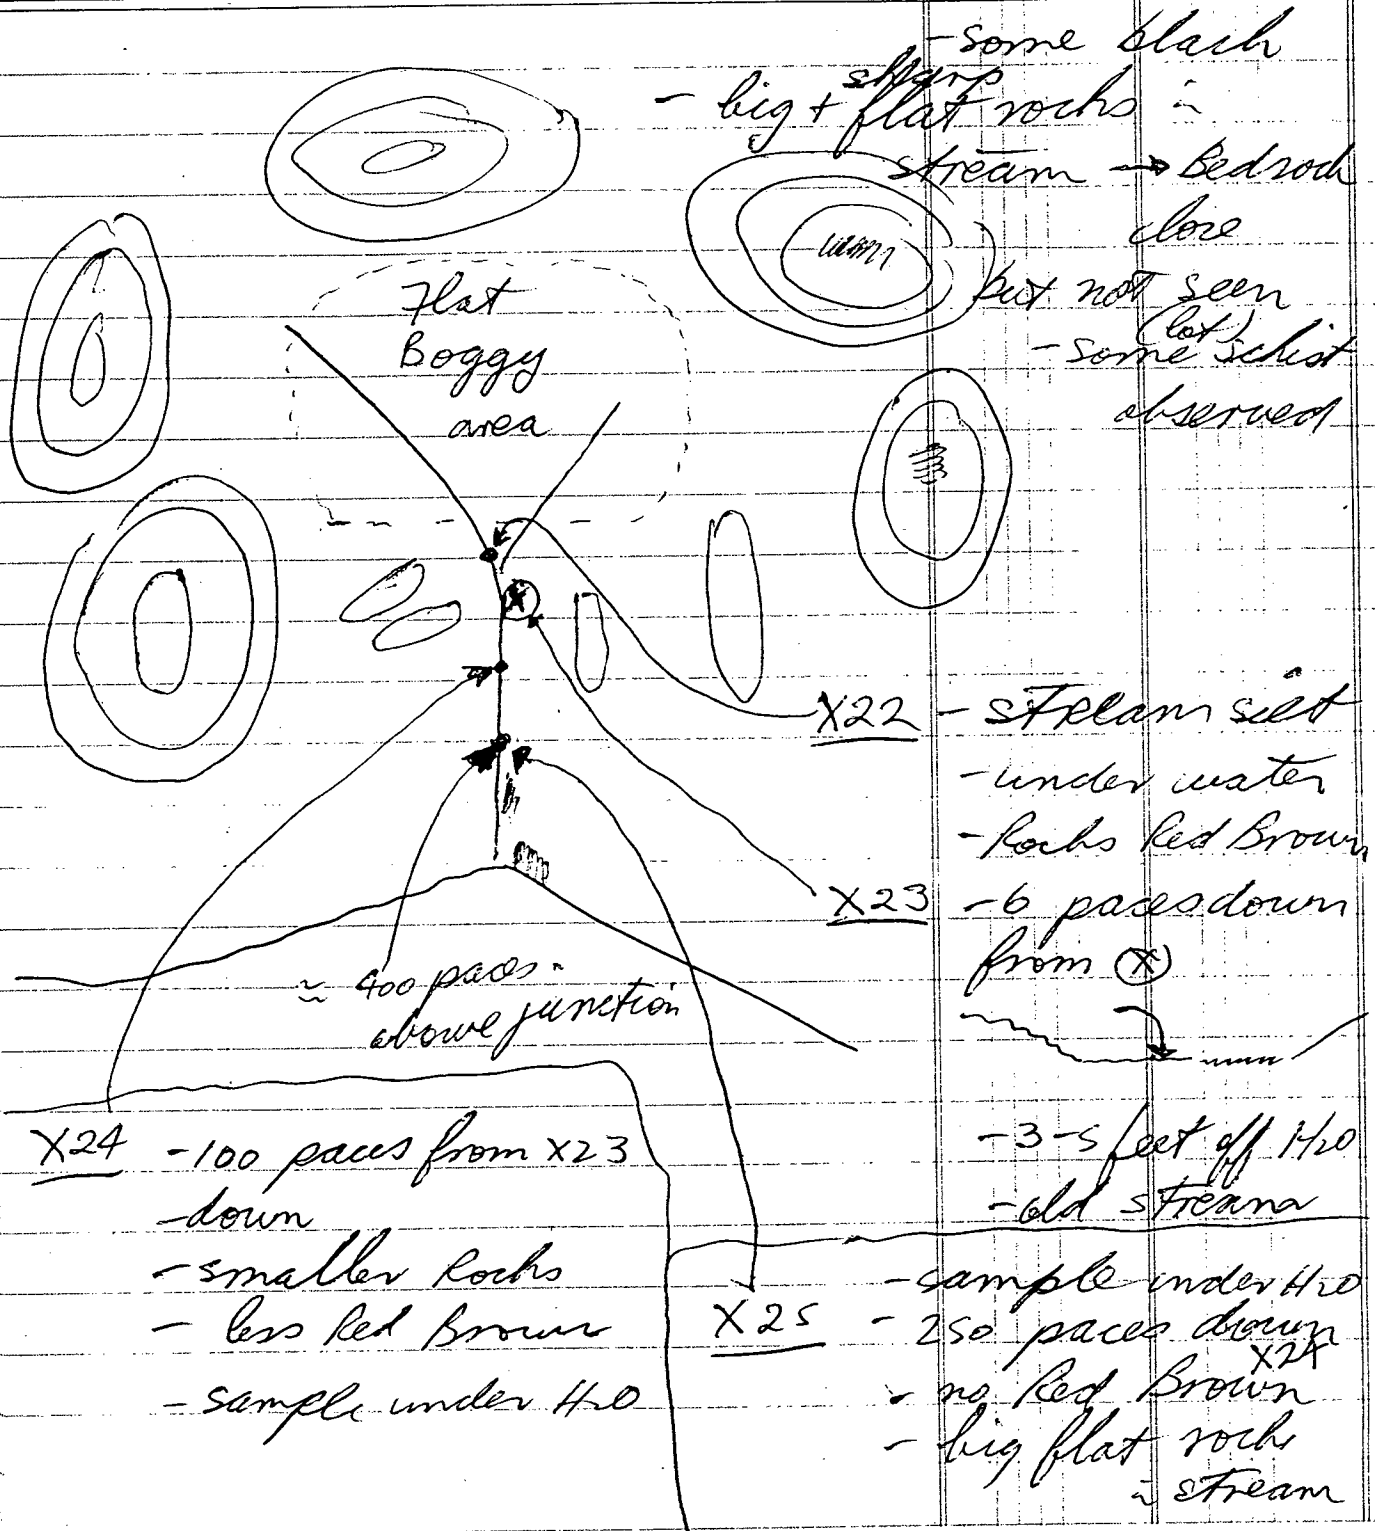 - some black
sharp
- big + flat rocks in
stream → Bedrock
close
but not seen
(lot)
- some schist
observed
Flat
Boggy
area
X
X22 - stream silt
- under water
- Rocks Red Brown
X23 - 6 paces down
from X
≈ 400 paces
above junction
- 3-5 feet off H2O
- old stream
X24 - 100 paces from X23
- down
- smaller Rocks
- less Red Brown
- sample under H2O
X25 - sample under H2O
- 250 paces down
X24
- no Red Brown
- big flat rocks
in stream